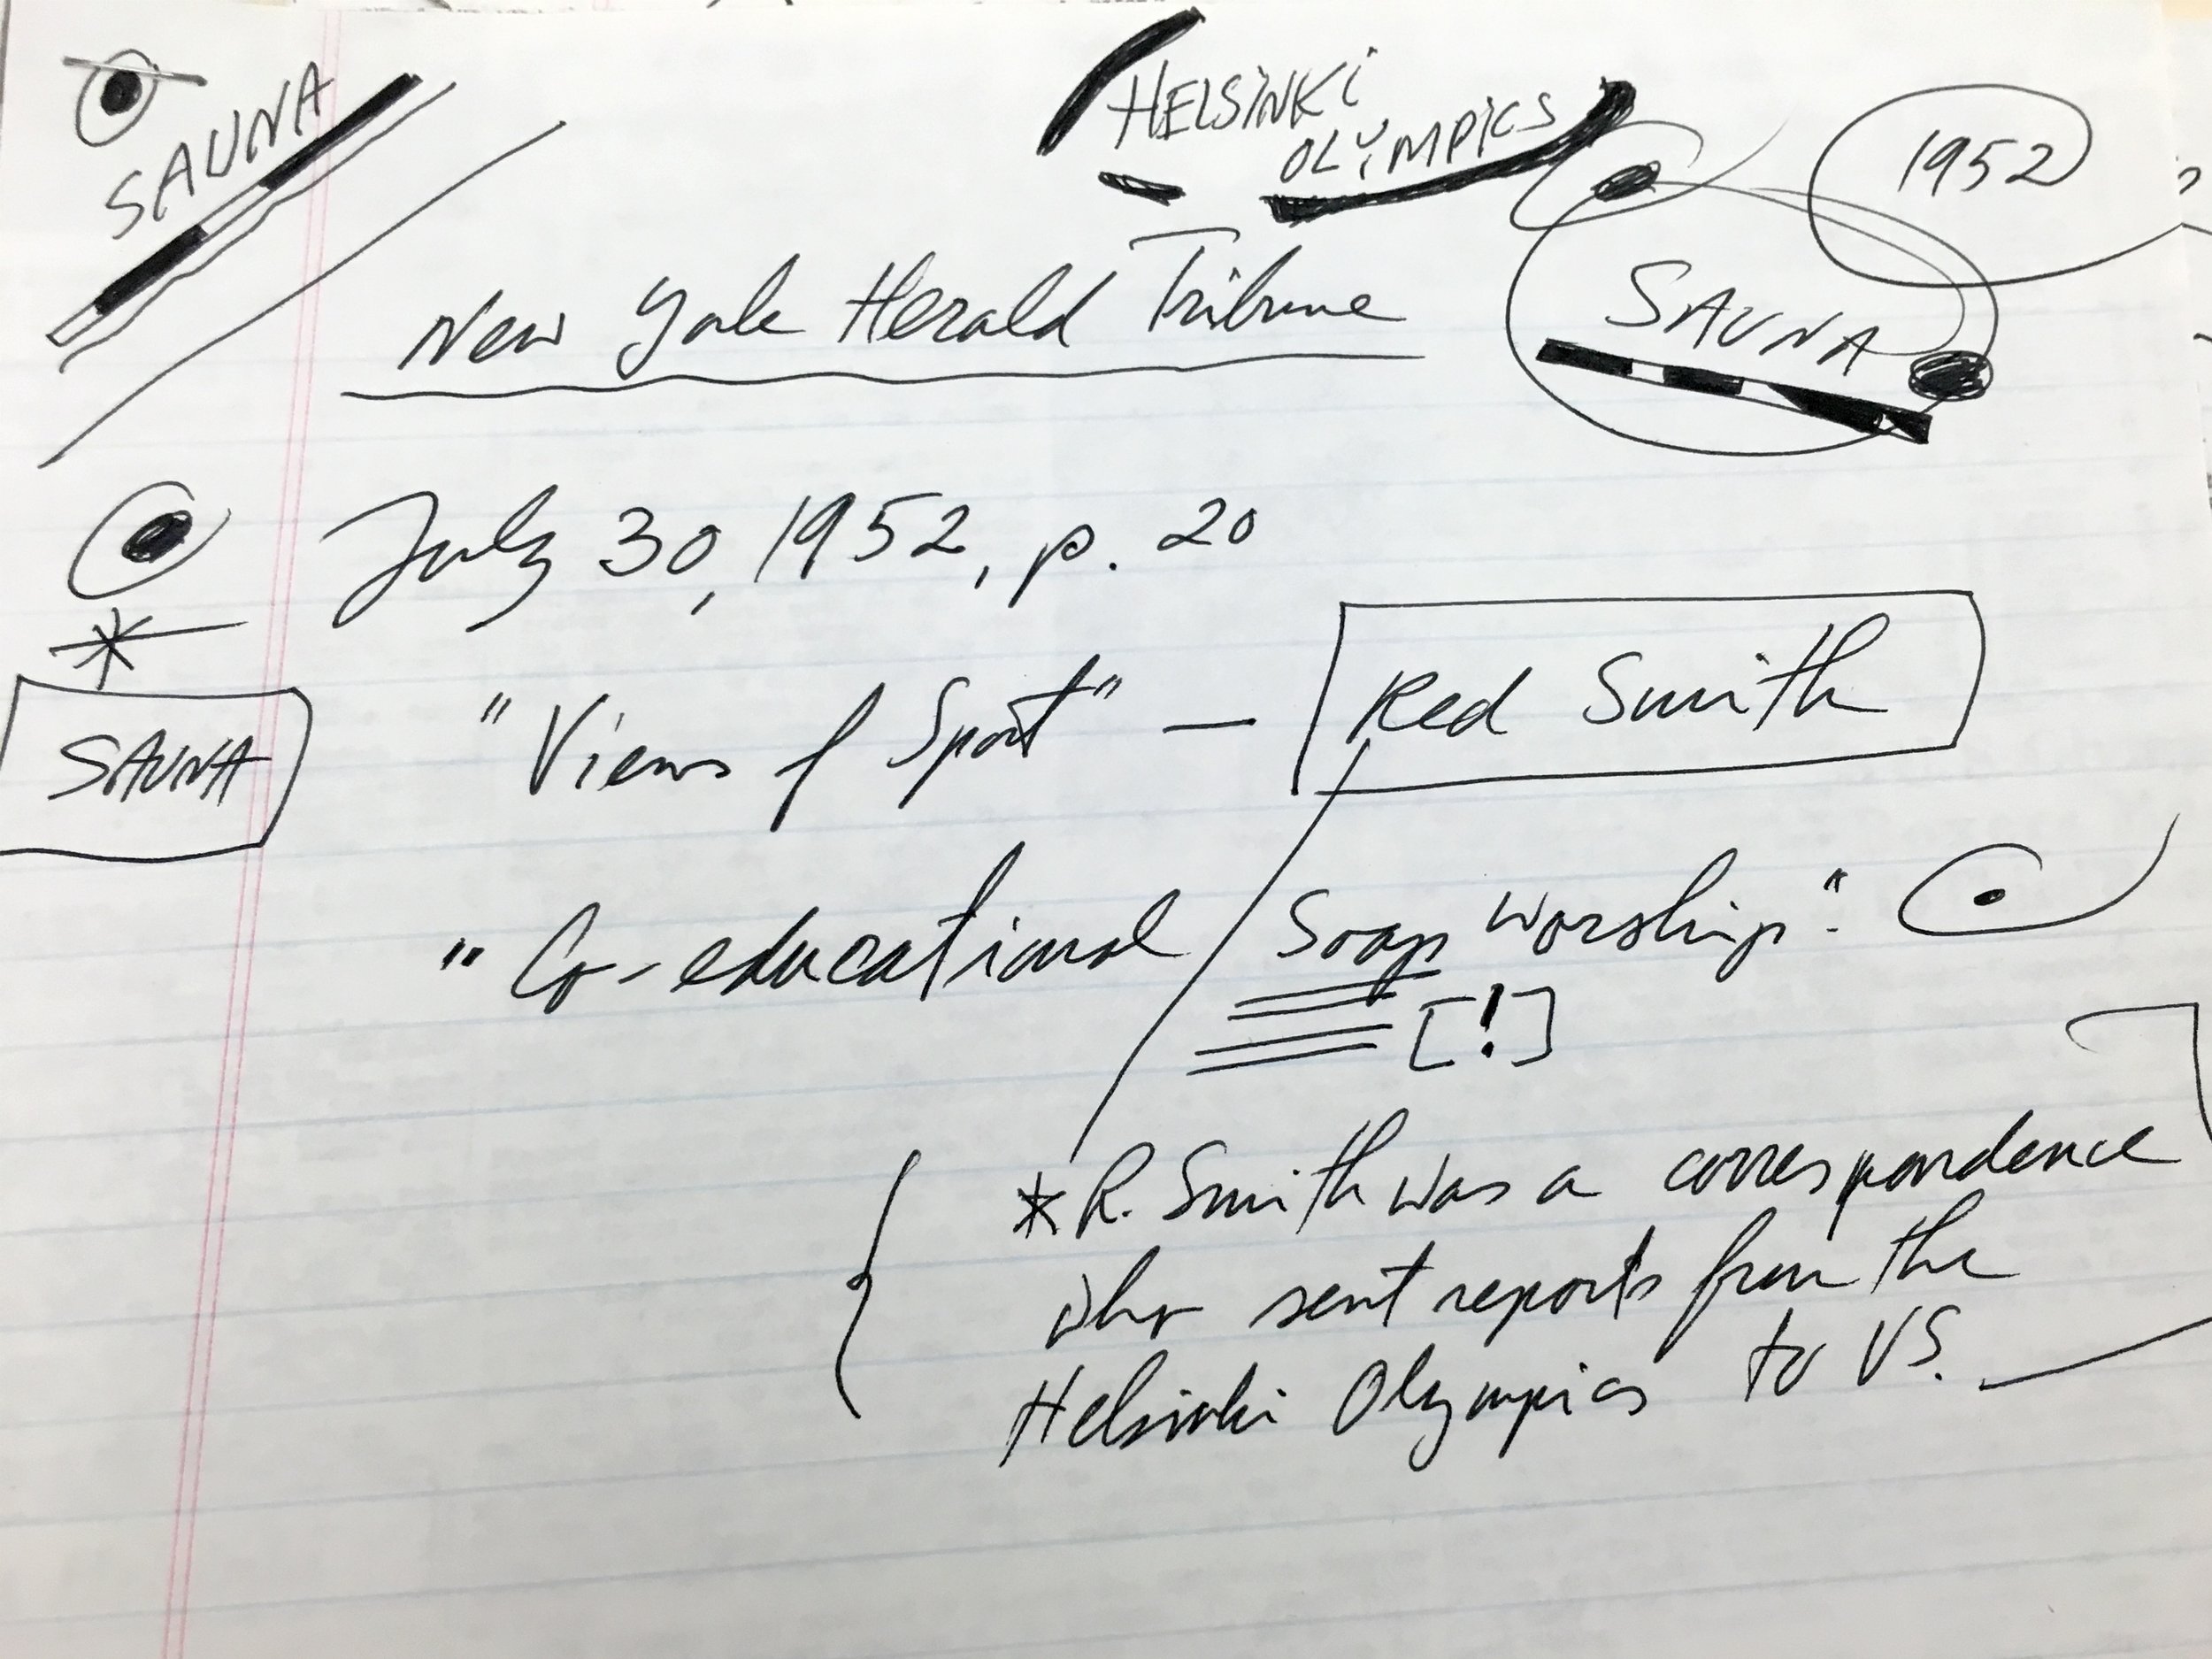 SAUNA
HELSINKI
OLYMPICS
1952
New York Herald Tribune
SAUNA
July 30, 1952, p. 20
*
"Views of Sport" — Red Smith
SAUNA
"Co-educational Soap Worship".
[!]
* R. Smith was a correspondence
who sent reports from the
Helsinki Olympics to US.